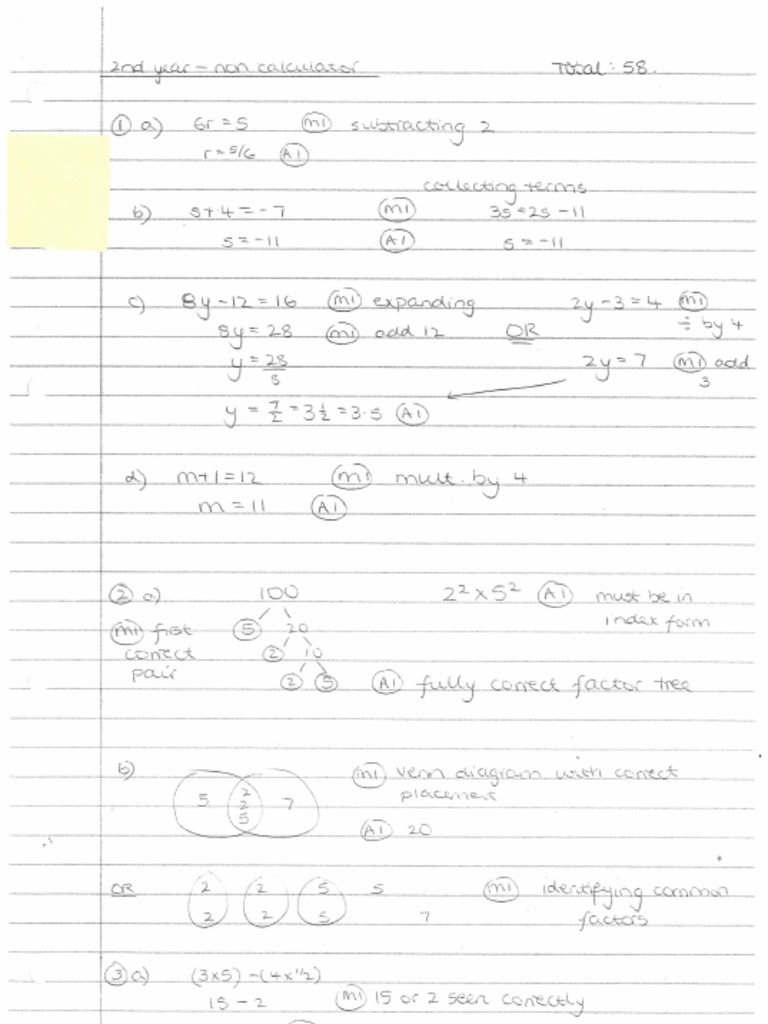 2nd year – non calculator Total: 58.
① a) 6r = 5 (M1) subtracting 2
r = 5/6 (A1)
collecting terms
b) s+4 = -7 (M1) 3s = 2s - 11
s = -11 (A1) s = -11
c) 8y - 12 = 16 (M1) expanding 2y - 3 = 4 (M1)
÷ by 4
8y = 28 (M1) add 12 OR
y = 28/8 2y = 7 (M1) add
3
y = 7/2 = 3½ = 3.5 (A1)
d) m+1 = 12 (M1) mult. by 4
m = 11 (A1)
② a) 100 2² × 5² (A1) must be in
index form
(M1) first 5 20
correct 2 10
pair
2 5 (A1) fully correct factor tree
b) (M1) Venn diagram with correct
placement
5 2 2 5 7
(A1) 20
OR 2 2 5 5 (M1) identifying common
2 2 5 7 factors
③ a) (3×5) - (4×1/2)
15 - 2 (M1) 15 or 2 seen correctly